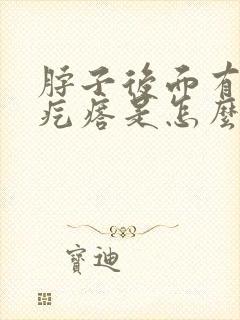 脖子後面有
疙瘩是怎麼
寶迪